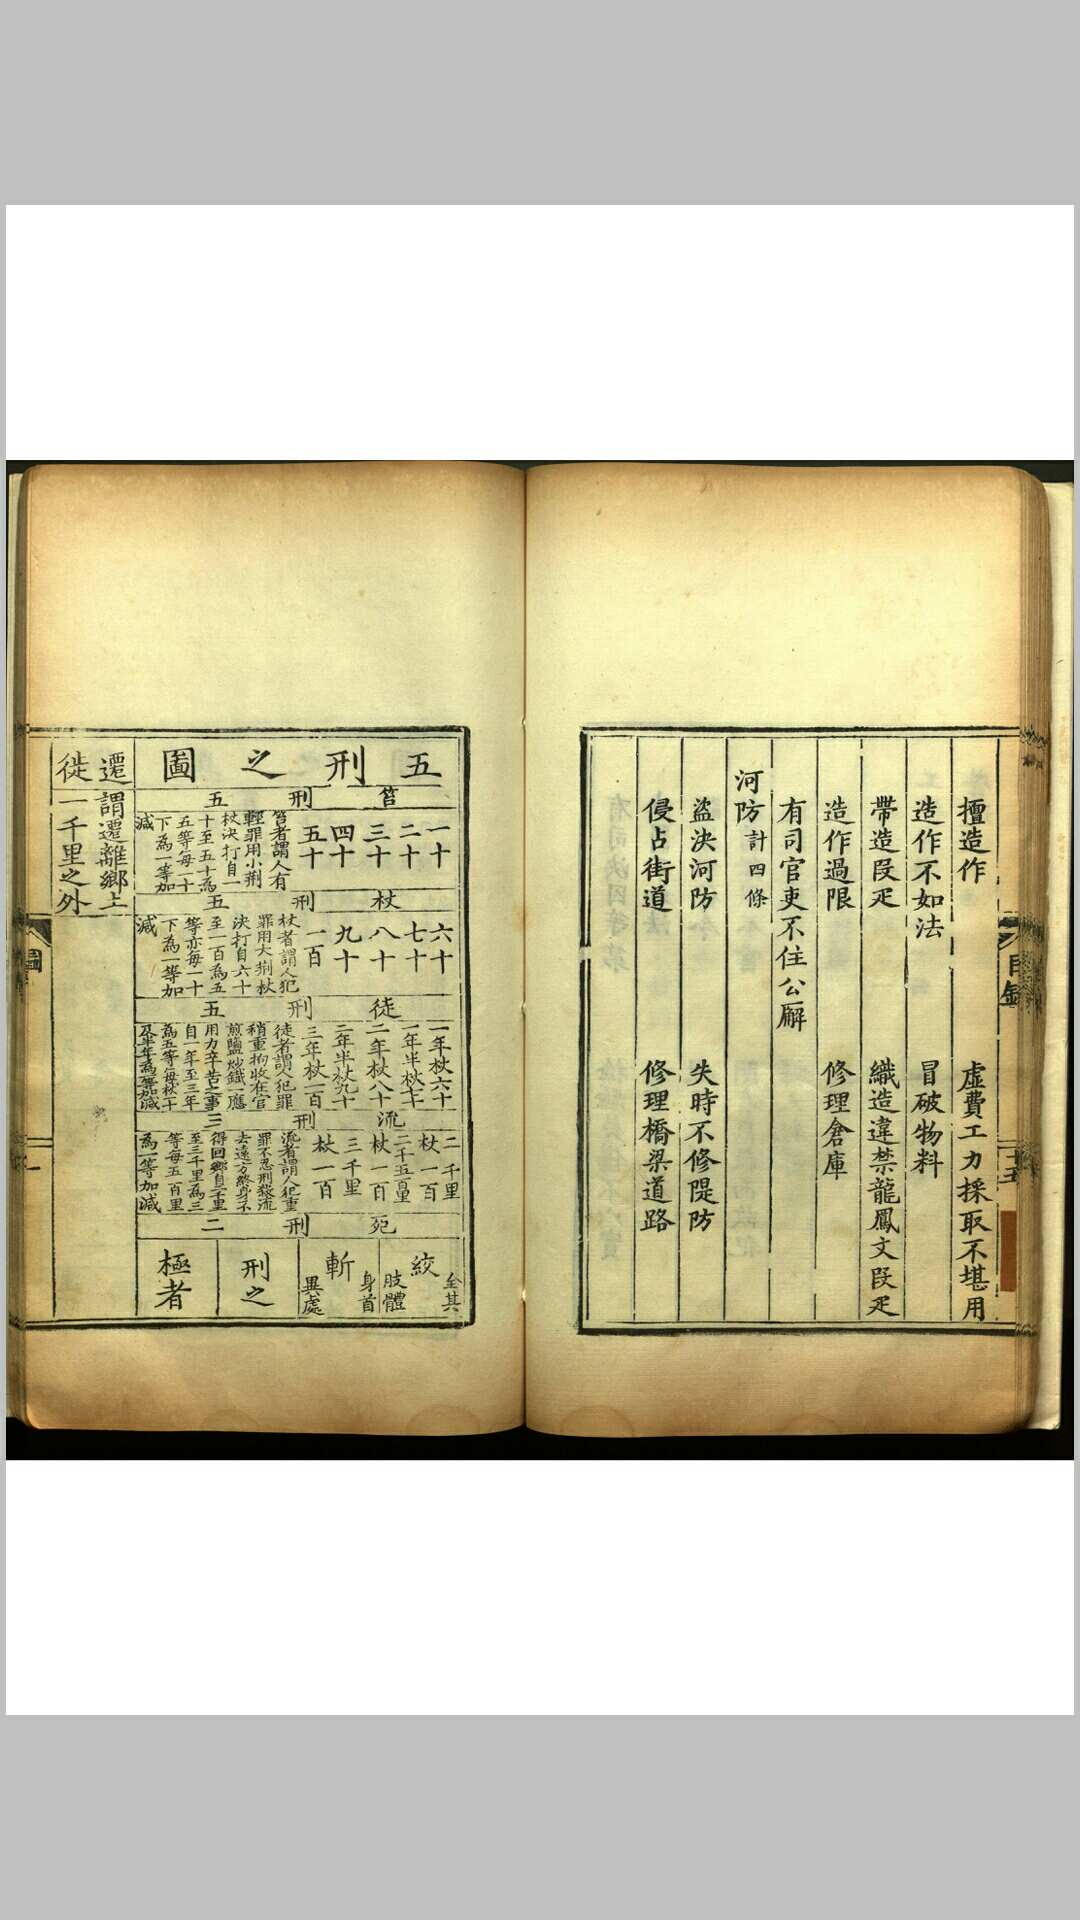 擅造作　虛費工力採取不堪用
造作不如法　冒破物料
帶造段疋　織造違禁龍鳳文段疋
造作過限　修理倉庫
有司官吏不住公廨
河防計四條
盜決河防　失時不修隄防
侵占街道　修理橋梁道路
目錄
五刑之圖
笞刑五
一十
二十
三十
四十
五十
笞者謂人有
輕罪用小荆
杖決打自一
十至五十為
五等每一十
下為一等加
減
杖刑五
六十
七十
八十
九十
一百
杖者謂人犯
罪用大荆杖
決打自六十
至一百為五
等亦每一十
下為一等加
減
徒刑五
一年杖六十
一年半杖七十
二年杖八十
二年半杖九十
三年杖一百
徒者謂人犯罪
稍重拘收在官
煎鹽炒鐵一應
用力辛苦之事
自一年至三年
為五等每杖一十
及半年為一等加減
流刑三
二千里
杖一百
二千五百里
杖一百
三千里
杖一百
流者謂人犯重
罪不忍刑殺流
去遠方終身不
得回鄉自二千里
至三千里為三
等每五百里
為一等加減
死刑二
絞
全其
肢體
斬
身首
異處
刑之
極者
遷徙
謂遷離鄉土
一千里之外
圖